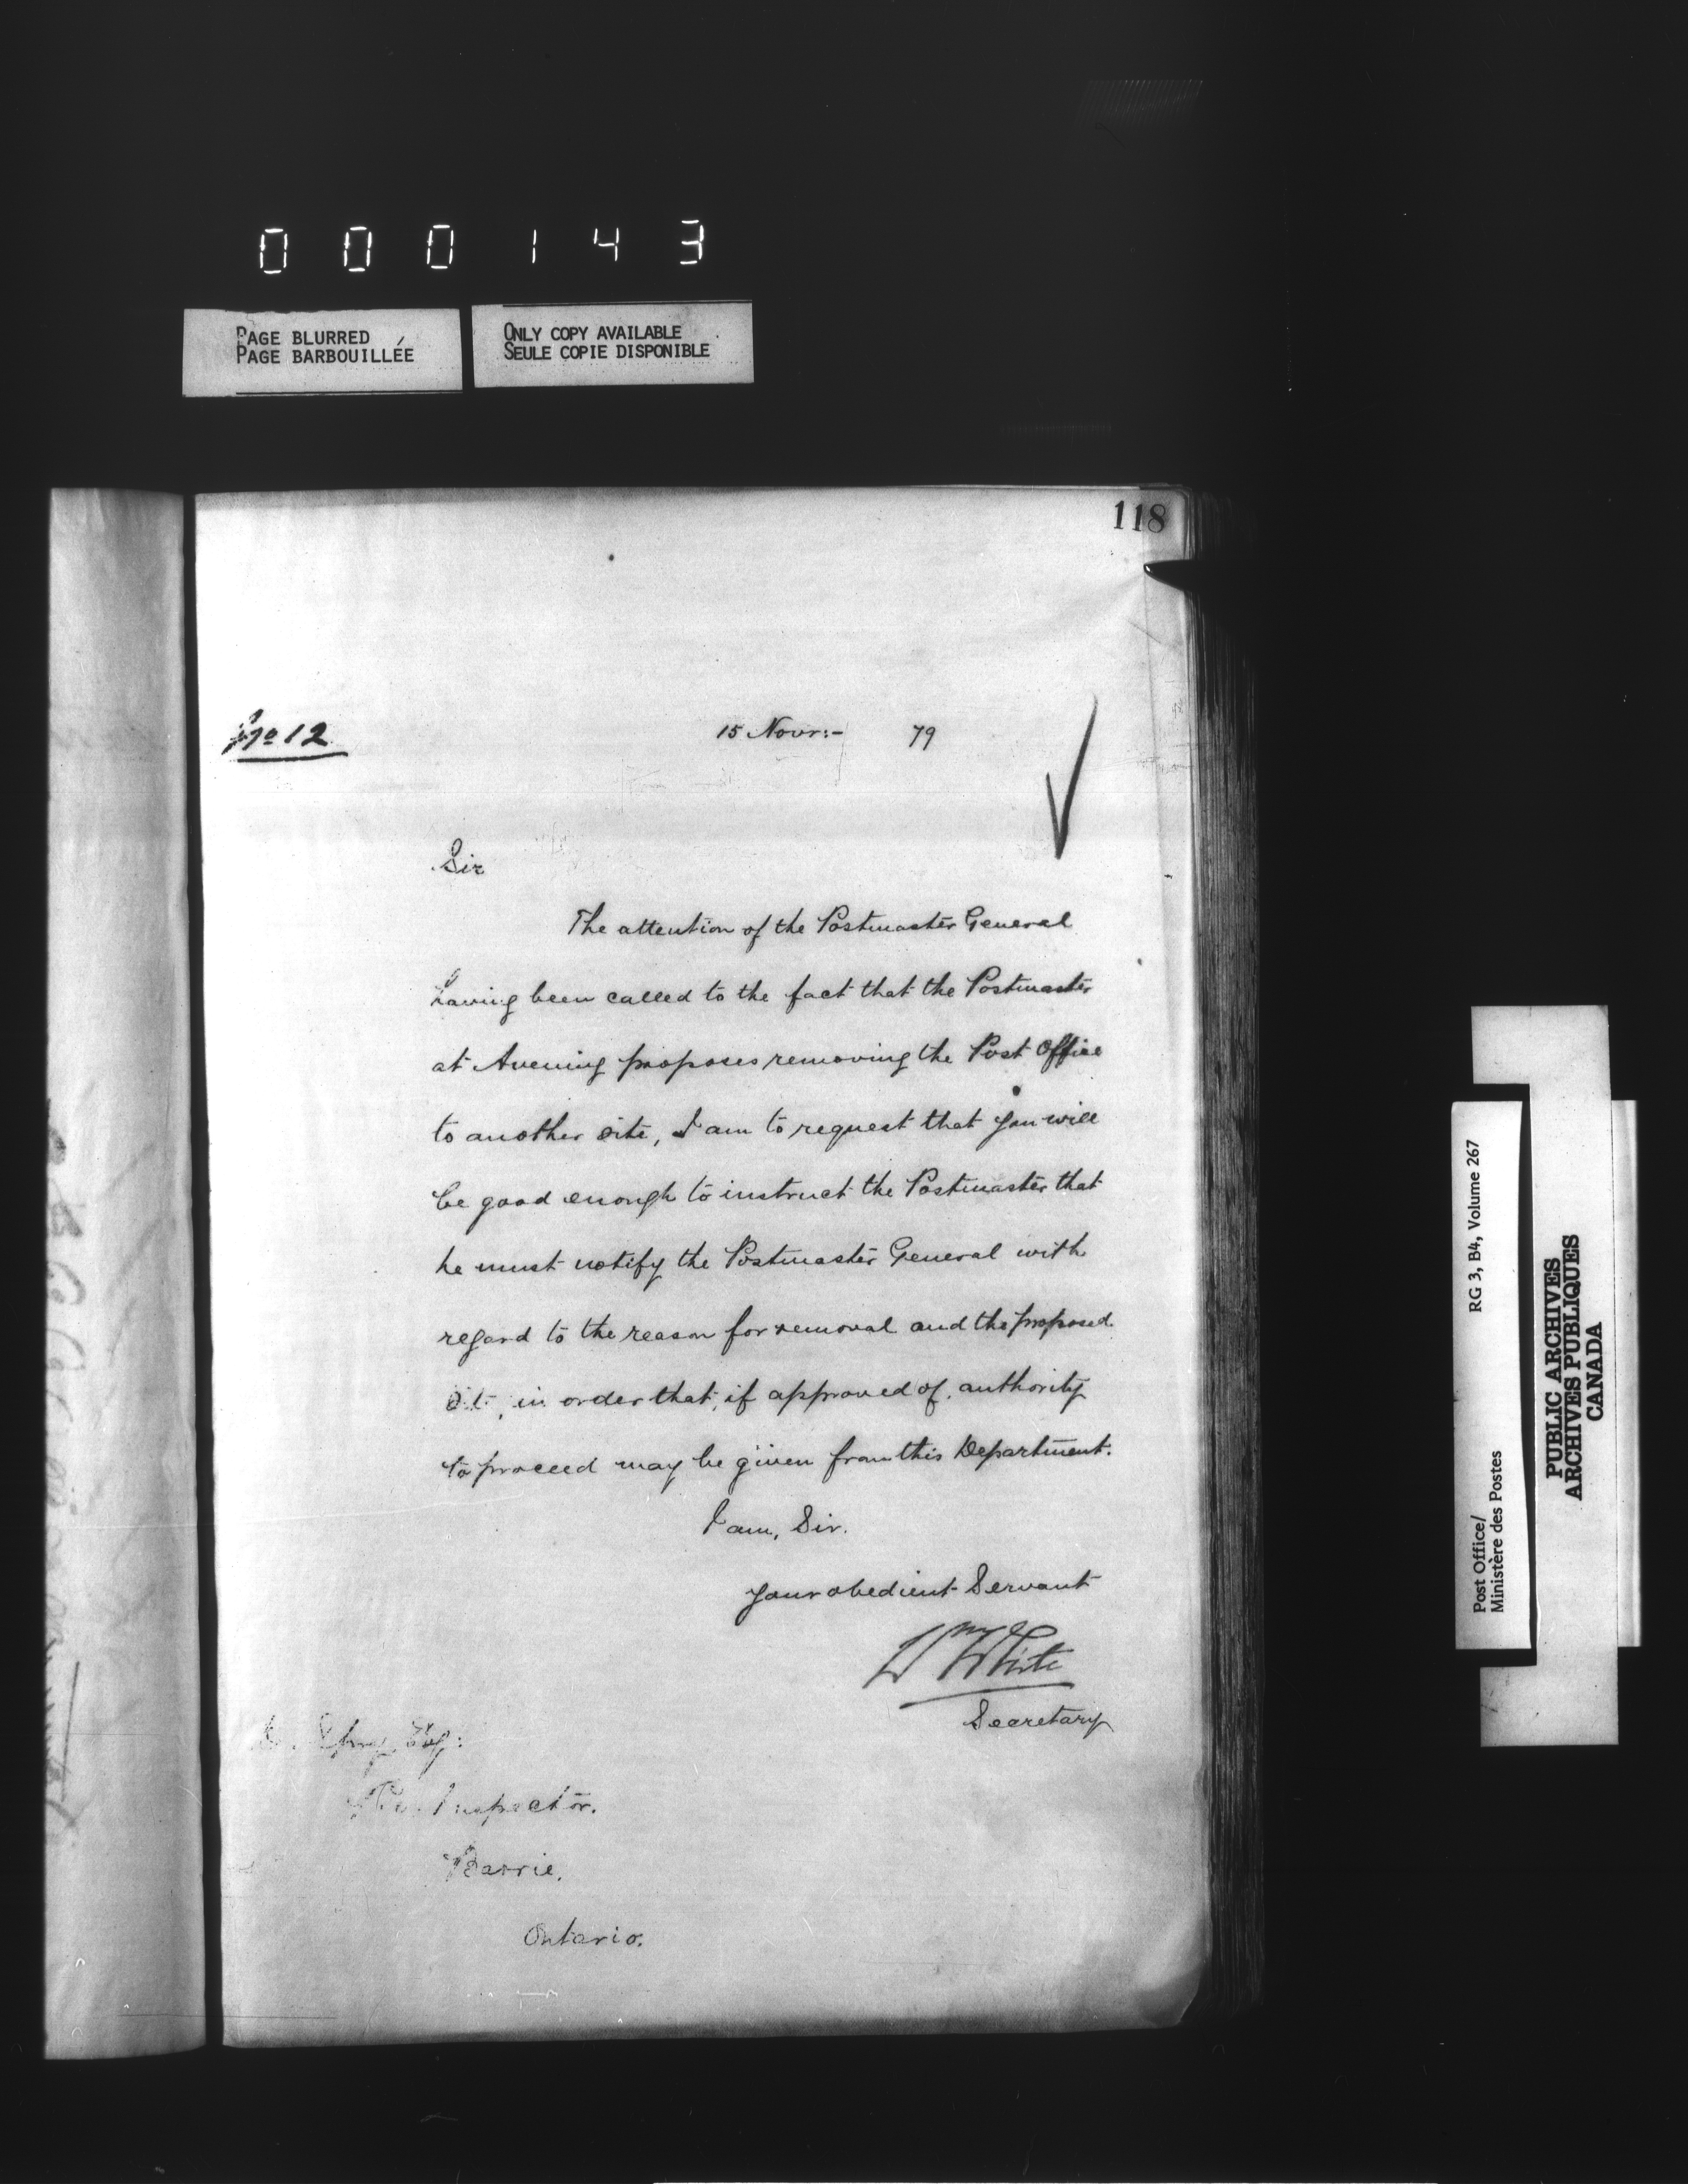 000143
PAGE BLURRED
PAGE BARBOUILLÉE
ONLY COPY AVAILABLE
SEULE COPIE DISPONIBLE
118
No 12
15 Novr:- 79
Sir
The attention of the Postmaster General
having been called to the fact that the Postmaster
at Avening proposes removing the Post Office
to another site, I am to request that you will
be good enough to instruct the Postmaster that
he must notify the Postmaster General with
regard to the reason for removal and the proposed
site, in order that, if approved of, authority
to proceed may be given from this Department.
I am, Sir.
Your obedient Servant
Wm White
Secretary
Esq:
Inspector.
Barrie.
Ontario.
Post Office/
Ministère des Postes
RG 3, B4, Volume 267
PUBLIC ARCHIVES
ARCHIVES PUBLIQUES
CANADA